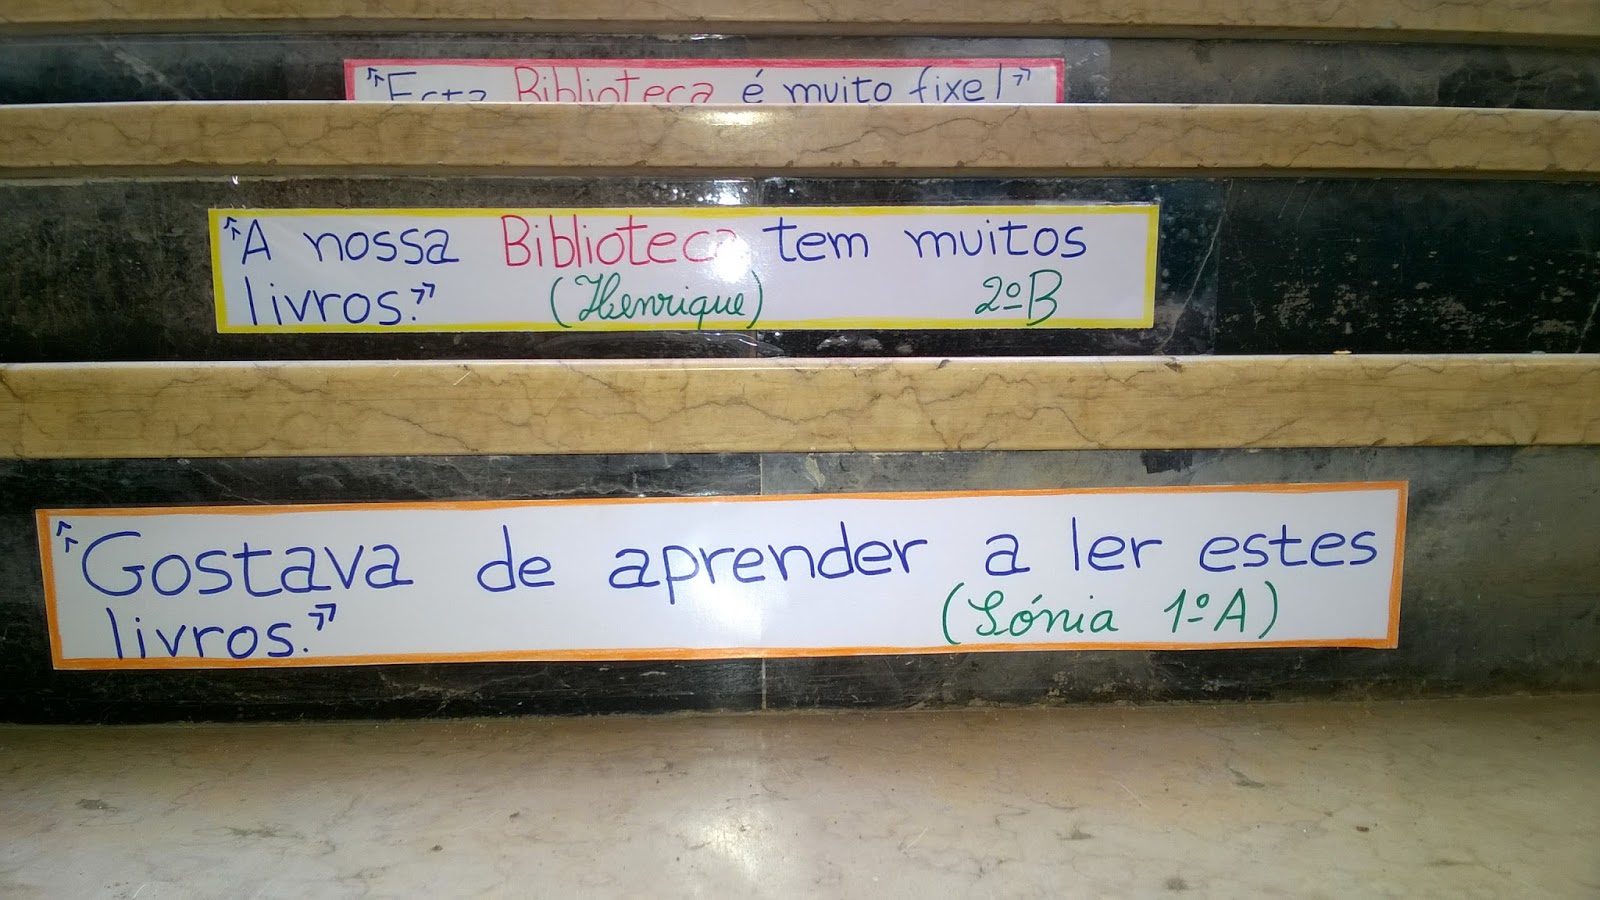 "Esta Biblioteca é muito fixe!"
"A nossa Biblioteca tem muitos
livros." (Henrique) 2ºB
"Gostava de aprender a ler estes
livros." (Sónia 1ºA)